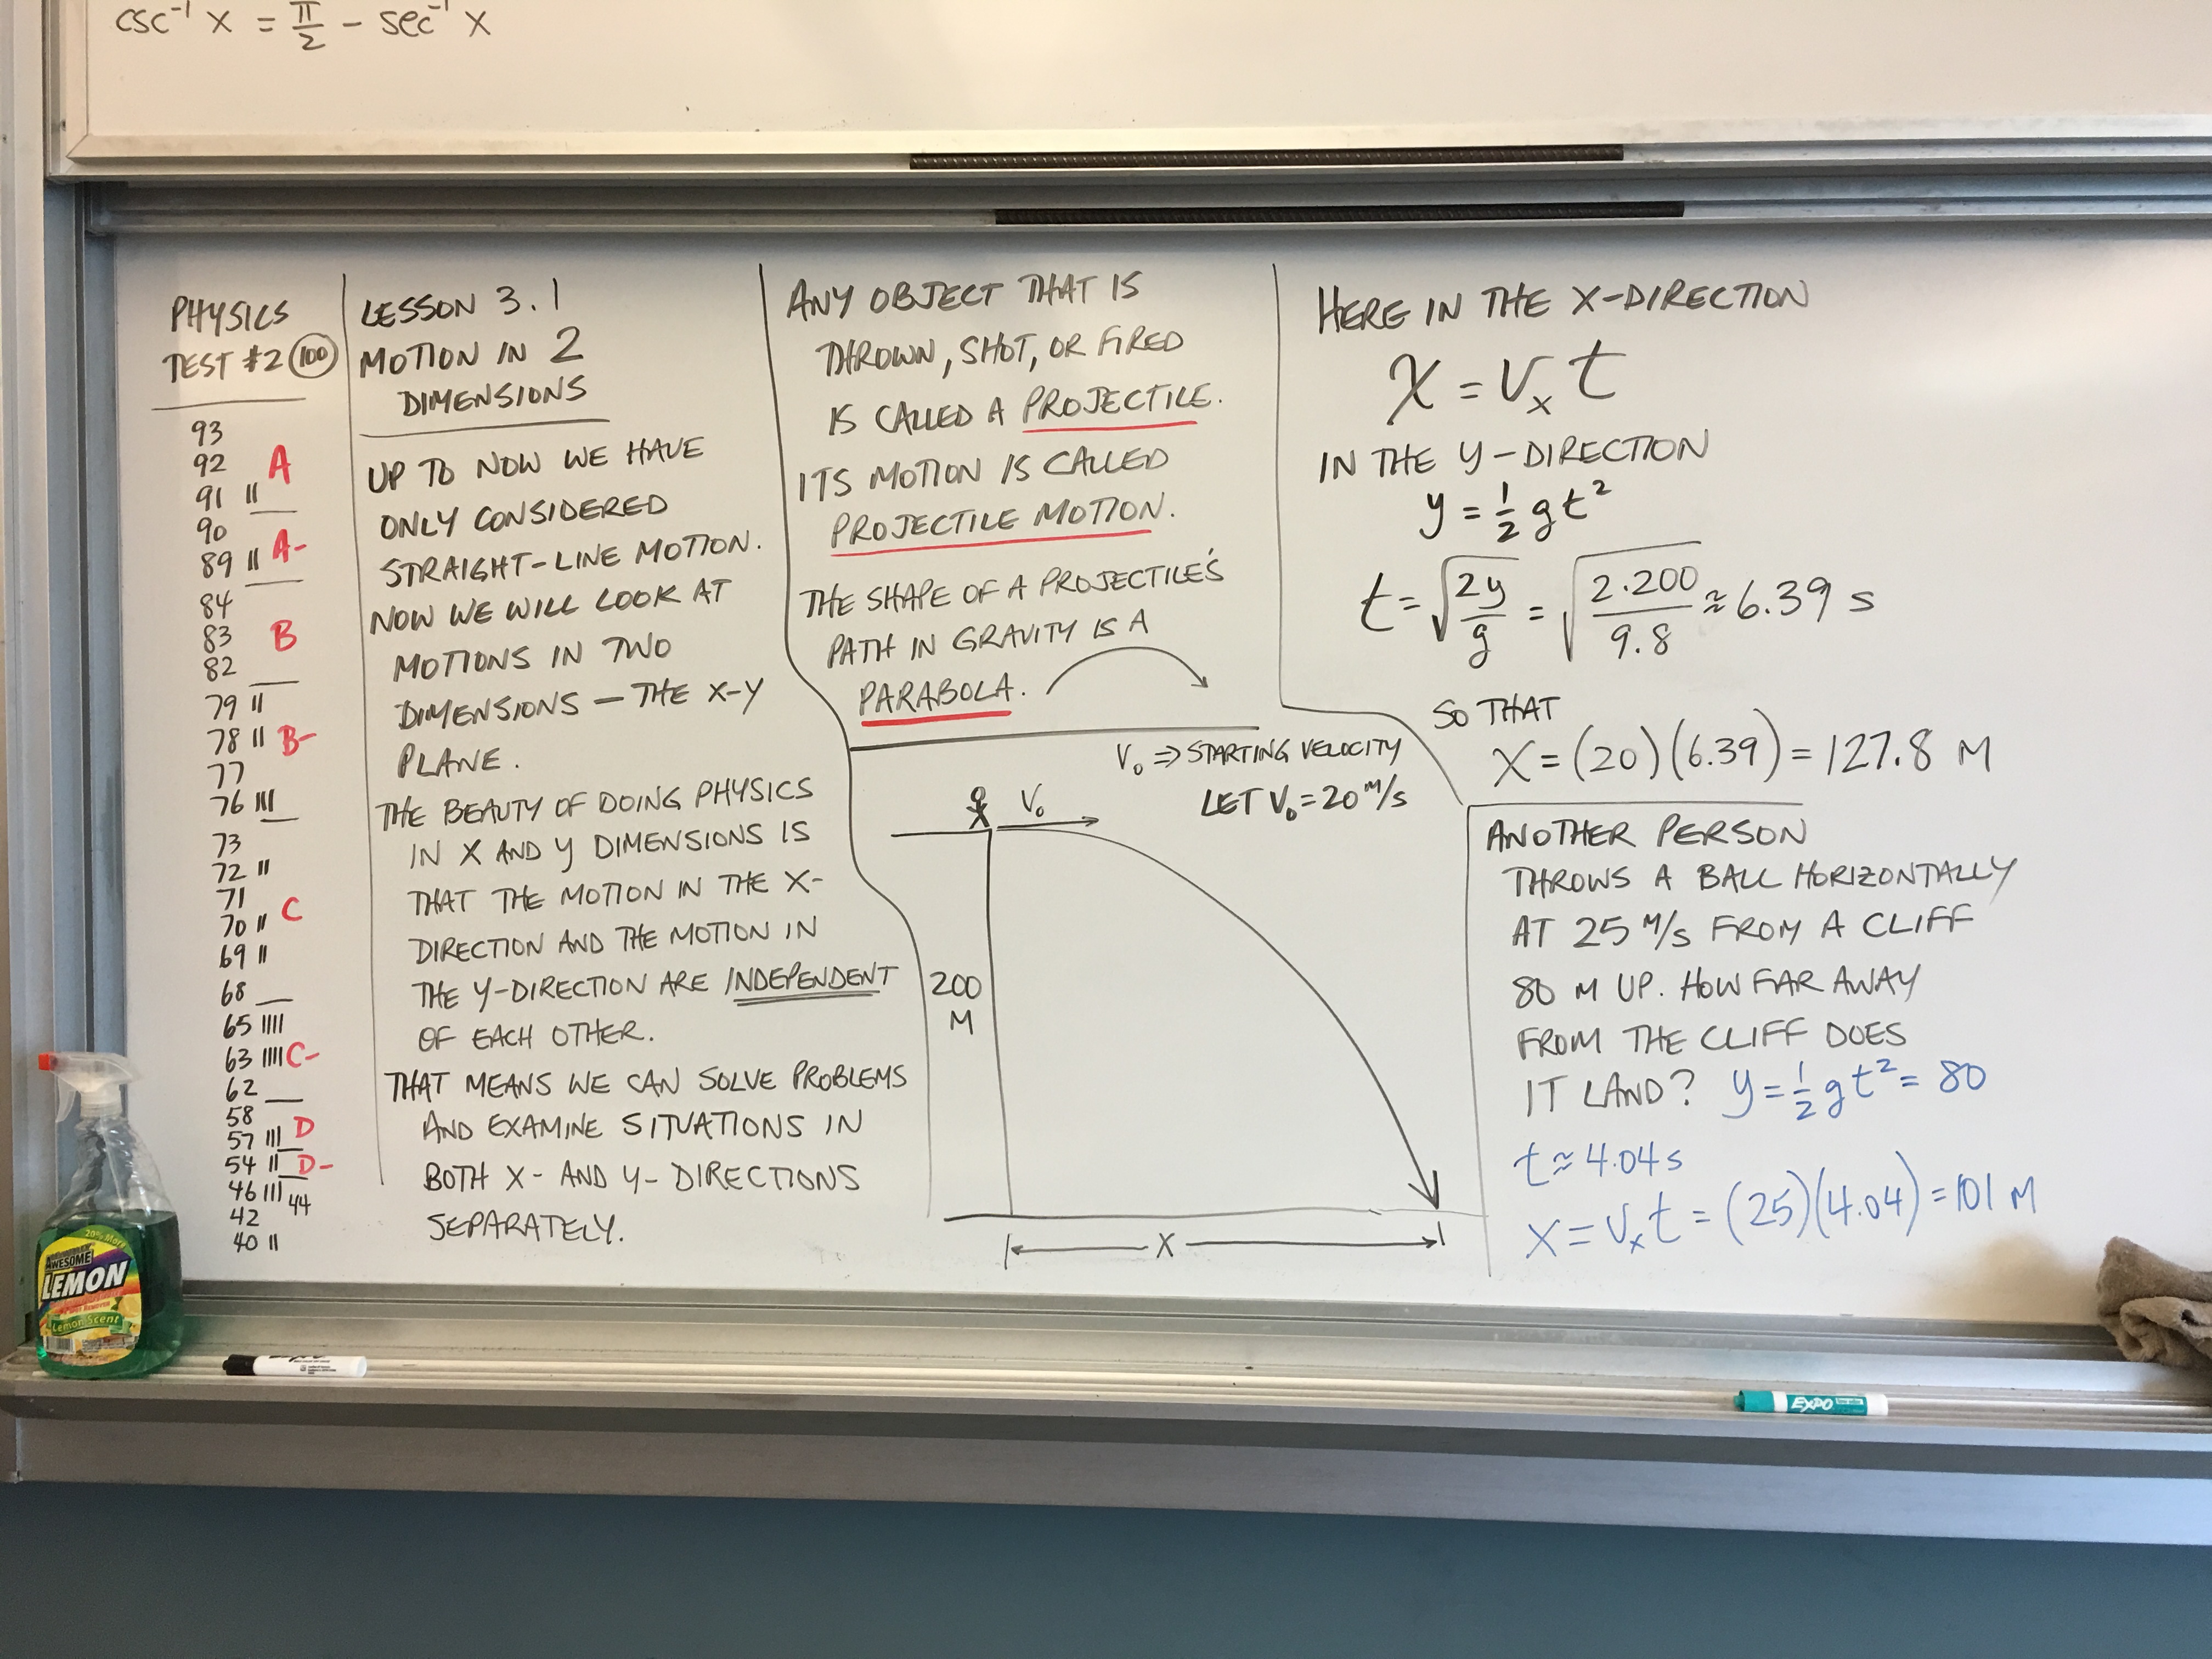 csc⁻¹ x = π/2 - sec⁻¹ x
PHYSICS
TEST #2 (100)
93
92 A
91 ||
90
89 || A-
84
83 B
82
79 ||
78 || B-
77
76 |||
73
72 ||
71
70 || C
69 ||
68
65 ||||
63 |||| C-
62
58
57 ||| D
54 || D-
46 ||| 44
42
40 ||
LESSON 3.1
MOTION IN 2
DIMENSIONS
UP TO NOW WE HAVE
ONLY CONSIDERED
STRAIGHT-LINE MOTION.
NOW WE WILL LOOK AT
MOTIONS IN TWO
DIMENSIONS — THE X-Y
PLANE.
THE BEAUTY OF DOING PHYSICS
IN X AND Y DIMENSIONS IS
THAT THE MOTION IN THE X-
DIRECTION AND THE MOTION IN
THE Y-DIRECTION ARE INDEPENDENT
OF EACH OTHER.
THAT MEANS WE CAN SOLVE PROBLEMS
AND EXAMINE SITUATIONS IN
BOTH X- AND Y- DIRECTIONS
SEPARATELY.
ANY OBJECT THAT IS
THROWN, SHOT, OR FIRED
IS CALLED A PROJECTILE.
ITS MOTION IS CALLED
PROJECTILE MOTION.
THE SHAPE OF A PROJECTILE'S
PATH IN GRAVITY IS A
PARABOLA.
V₀ ⇒ STARTING VELOCITY
LET V₀ = 20 M/S
V₀
200
M
X
HERE IN THE X-DIRECTION
X = Vₓ t
IN THE Y-DIRECTION
y = 1/2 g t²
t = √(2y/g) = √(2·200/9.8) ≈ 6.39 s
SO THAT
X = (20)(6.39) = 127.8 M
ANOTHER PERSON
THROWS A BALL HORIZONTALLY
AT 25 M/S FROM A CLIFF
80 M UP. HOW FAR AWAY
FROM THE CLIFF DOES
IT LAND? y = 1/2 g t² = 80
t ≈ 4.04 s
X = Vₓ t = (25)(4.04) = 101 M
20% More
AWESOME
LEMON
Lemon Scent
EXPO
EXPO